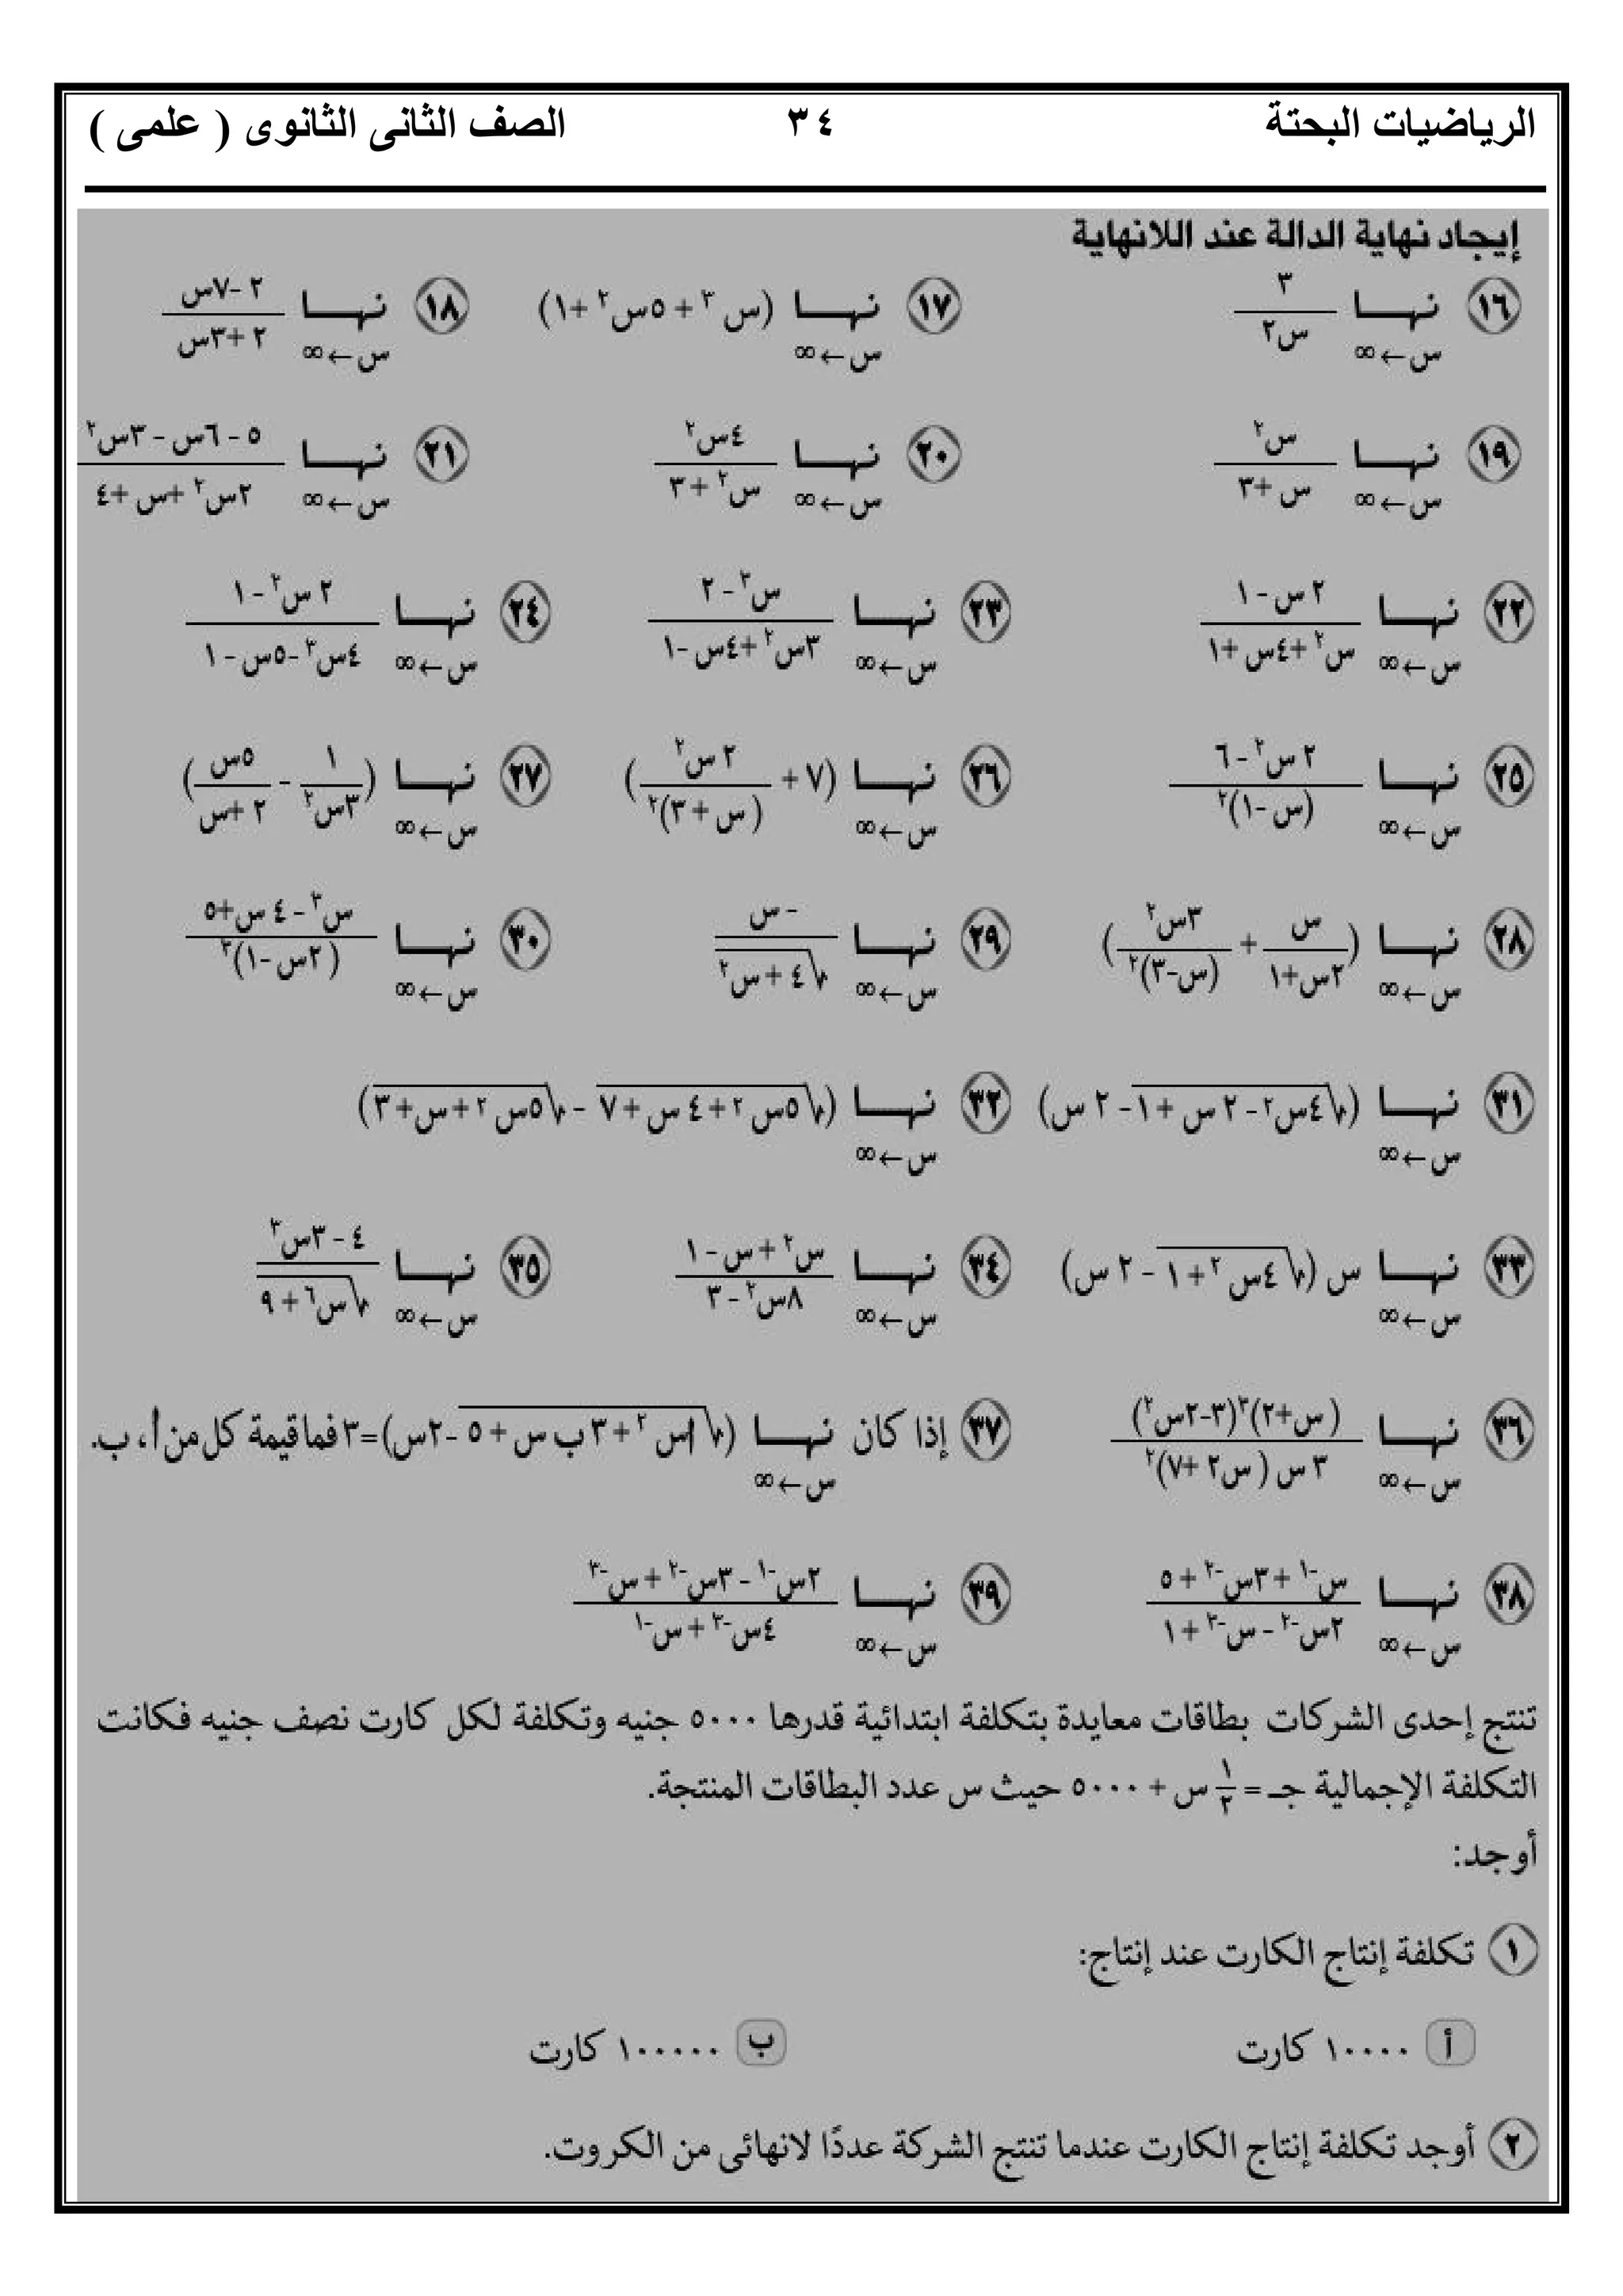 الرياضيات البحتة ٣٤ الصف الثانى الثانوى ( علمى )
إيجاد نهاية الدالة عند اللانهاية
١٦ نهــا س←∞ ٣ / س٢ ١٧ نهــا س←∞ (س٣ + ٥س٢ + ١) ١٨ نهــا س←∞ ٢ - ٧س / ٢ + ٣س
١٩ نهــا س←∞ س٢ / س + ٣ ٢٠ نهــا س←∞ ٤س٢ / س٢ + ٣ ٢١ نهــا س←∞ ٥ - ٦س - ٣س٢ / ٢س٢ + س + ٤
٢٢ نهــا س←∞ ٢ س - ١ / س٢ + ٤س + ١ ٢٣ نهــا س←∞ س٣ - ٢ / ٣س٢ + ٤س - ١ ٢٤ نهــا س←∞ ٢ س٢ - ١ / ٤س٣ - ٥س - ١
٢٥ نهــا س←∞ ٢ س٢ - ٦ / (س - ١)٢ ٢٦ نهــا س←∞ (٧ + ٢ س٢ / (س + ٣)٢) ٢٧ نهــا س←∞ (١ / ٣س٢ - ٥س / ٢ + س)
٢٨ نهــا س←∞ (س / ٢س + ١ + ٣س٢ / (س - ٣)٢) ٢٩ نهــا س←∞ - س / √(٤ + س٢) ٣٠ نهــا س←∞ س٣ - ٤ س + ٥ / (٢س - ١)٣
٣١ نهــا س←∞ (√(٤س٢ - ٢ س + ١) - ٢ س) ٣٢ نهــا س←∞ (√(٥س٢ + ٤ س + ٧) - √(٥س٢ + س + ٣))
٣٣ نهــا س←∞ س (√(٤س٢ + ١) - ٢ س) ٣٤ نهــا س←∞ س٢ + س - ١ / ٨س٢ - ٣ ٣٥ نهــا س←∞ ٤ - ٣س٣ / √(س٦ + ٩)
٣٦ نهــا س←∞ (س + ٢)٣(٣ - ٢س٢) / ٣ س (س٢ + ٧)٢ ٣٧ إذا كان نهــا س←∞ (√(أس٢ + ٣ ب س + ٥) - ٢س) = ٣ فما قيمة كل من أ ، ب.
٣٨ نهــا س←∞ س-١ + ٣س-٢ + ٥ / ٢س-٢ - س-٣ + ١ ٣٩ نهــا س←∞ ٢س-١ - ٣س-٢ + س-٣ / ٤س-٣ + س-١
تنتج إحدى الشركات بطاقات معايدة بتكلفة ابتدائية قدرها ٥٠٠٠ جنيه وتكلفة لكل كارت نصف جنيه فكانت
التكلفة الإجمالية جـ = ١/٢ س + ٥٠٠٠ حيث س عدد البطاقات المنتجة.
أوجد:
١ تكلفة إنتاج الكارت عند إنتاج:
أ ١٠٠٠٠ كارت ب ١٠٠٠٠٠ كارت
٢ أوجد تكلفة إنتاج الكارت عندما تنتج الشركة عددًا لانهائى من الكروت.